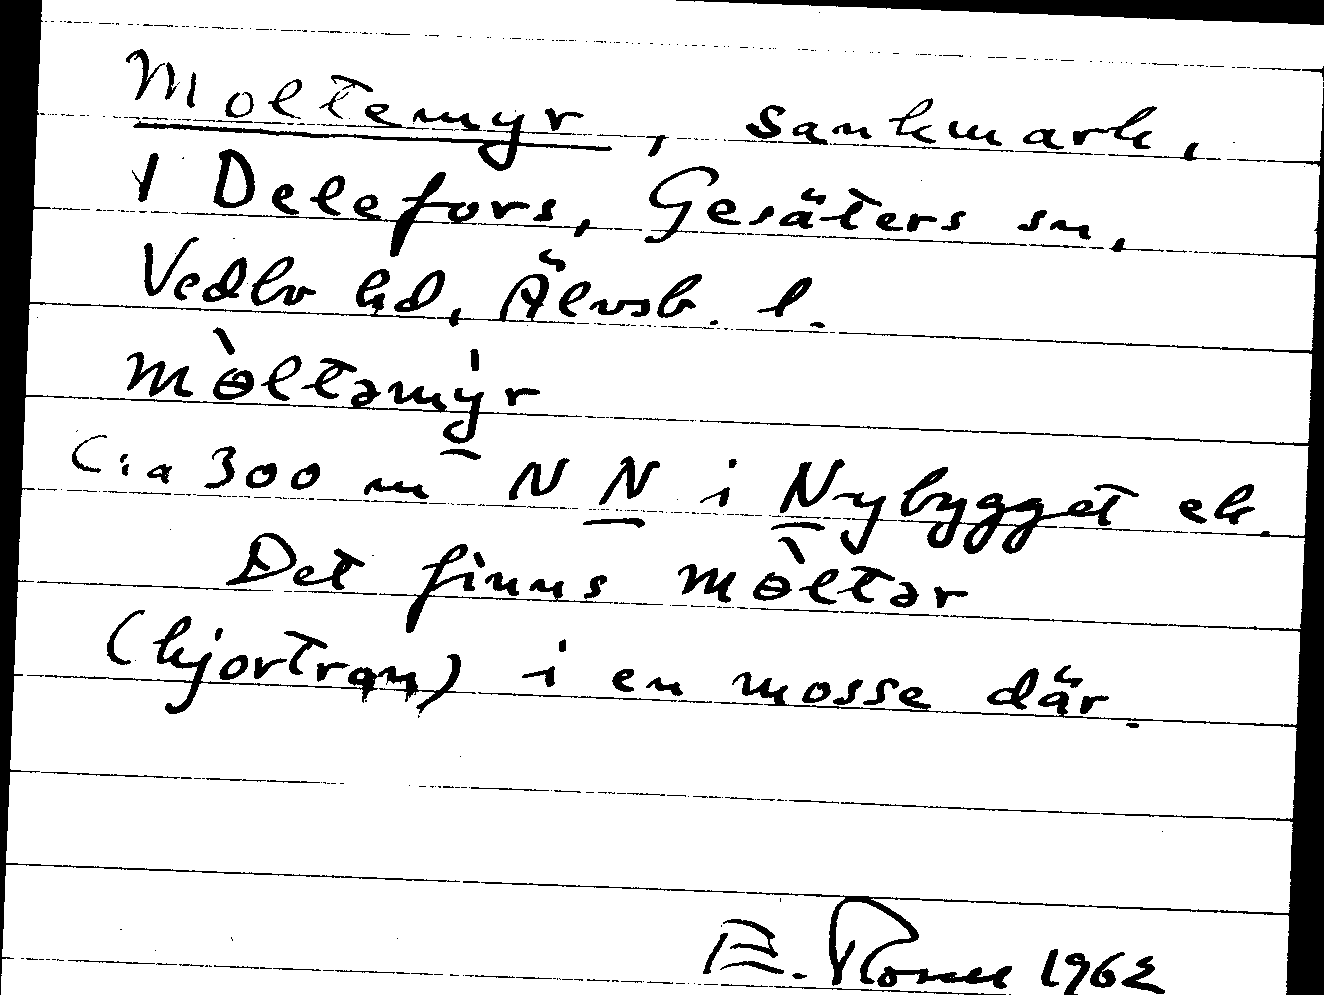 Moltemyr, sankmark,
1 Delefors, Gesäters sn,
Vedbo hd, Älvsb. l.
mòltamy̍r
C:a 300 m N N i Nybygget ek.
Det finns mòltər
(hjortron) i en mosse där.
E. 1962